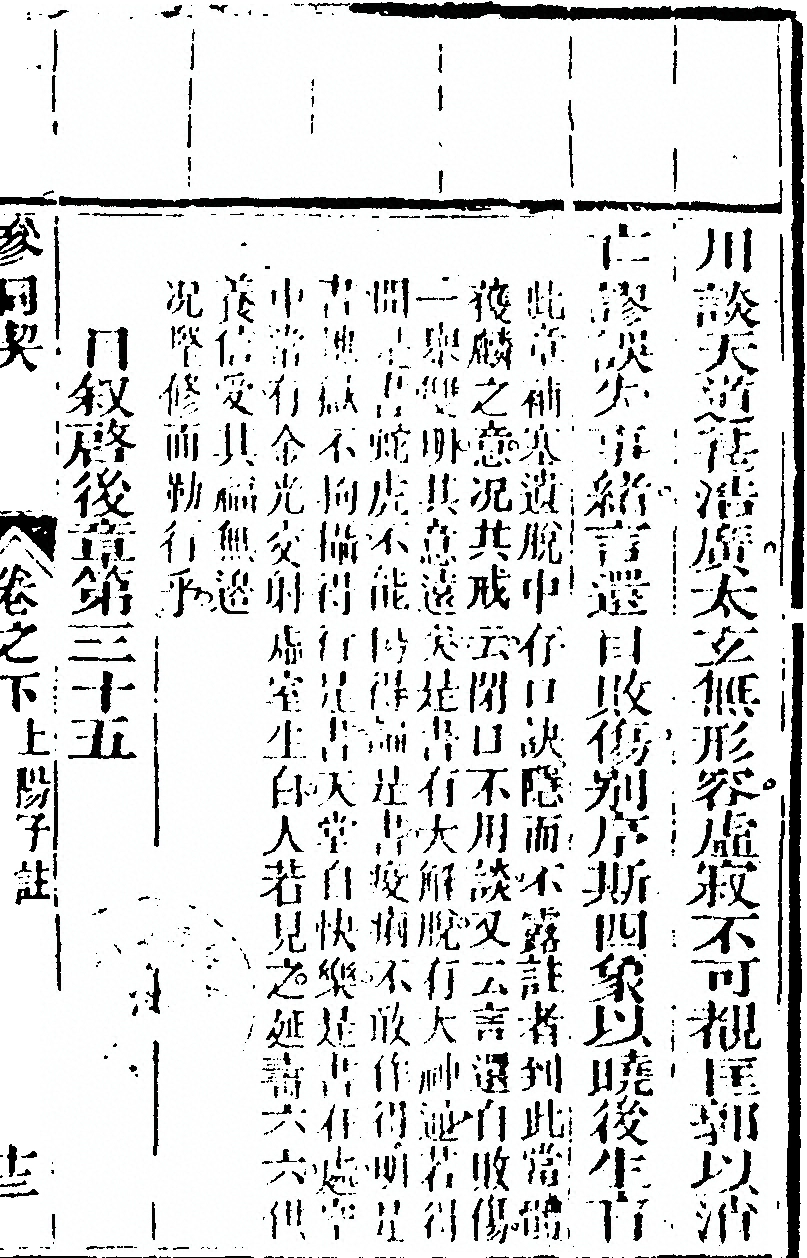 川談天道甚浩廣太玄無形容虛寂不可覩匡郭以消
亡謬誤失事緒言還自敗傷别序斯四象以曉後生盲
此章補塞遺脫中存口訣隱而不露註者到此當體
獲麟之意况其戒云閉口不用談又云言還自敗傷
一舉雙明其意遠矣是書有大解脫有大神通若得
聞是書蛇虎不能傷得誦是書疫癘不敢作得明是
書地獄不拘攝得行是書天堂自快樂是書在處空
中常有金光交射虛室生白人若見之延壽六六供
養信受其福無邊
况堅修而勤行乎
自叙啓後章第三十五
參同契
卷之下
上陽子註
十三